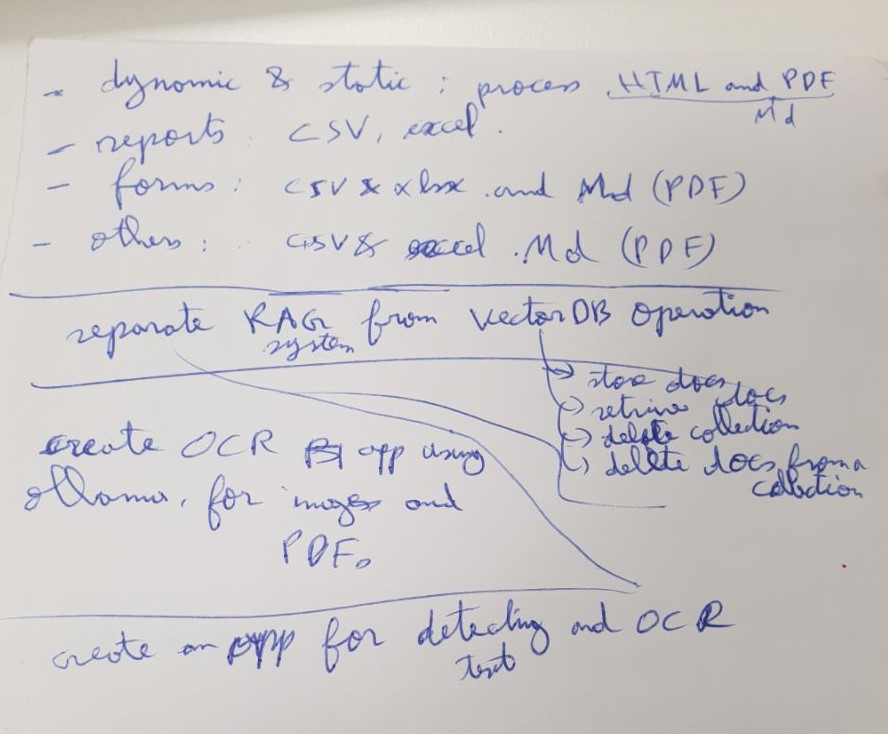 - dynamic & static : process HTML and PDF
Md
- reports : CSV, excel.
- forms : CSV & xlsx and Md (PDF)
- others : CSV & excel . Md (PDF)
separate RAG from VectorDB operation
system
→ store docs
→ retrieve docs
→ delete collection
→ delete docs from a
collection
create OCR app using
ollama, for images and
PDFs
create an app for detecting and OCR
text